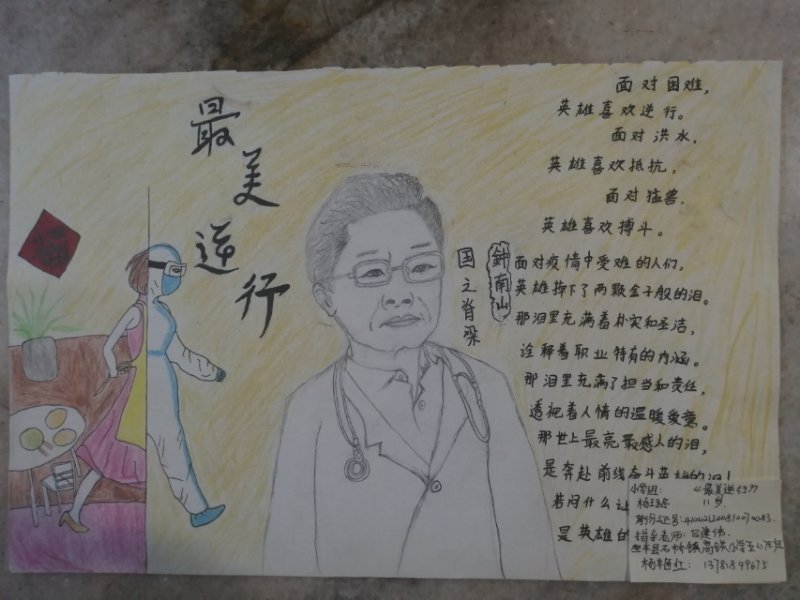 最美逆行
钟南山
国之脊梁
面对困难，
英雄喜欢逆行。
面对洪水，
英雄喜欢抵抗，
面对猛兽.
英雄喜欢搏斗。
面对疫情中受难的人们，
英雄掉下了两颗金子般的泪。
那泪里充满着朴实和圣洁，
诠释着职业特有的内涵。
那泪里充满了担当和责任，
透视着人情的温暖爱意。
那世上最亮最感人的泪，
是奔赴前线奋斗英雄的泪！
若问什么
是英雄的
小学组：《最美逆行》
11岁
身份证号：
指导老师：